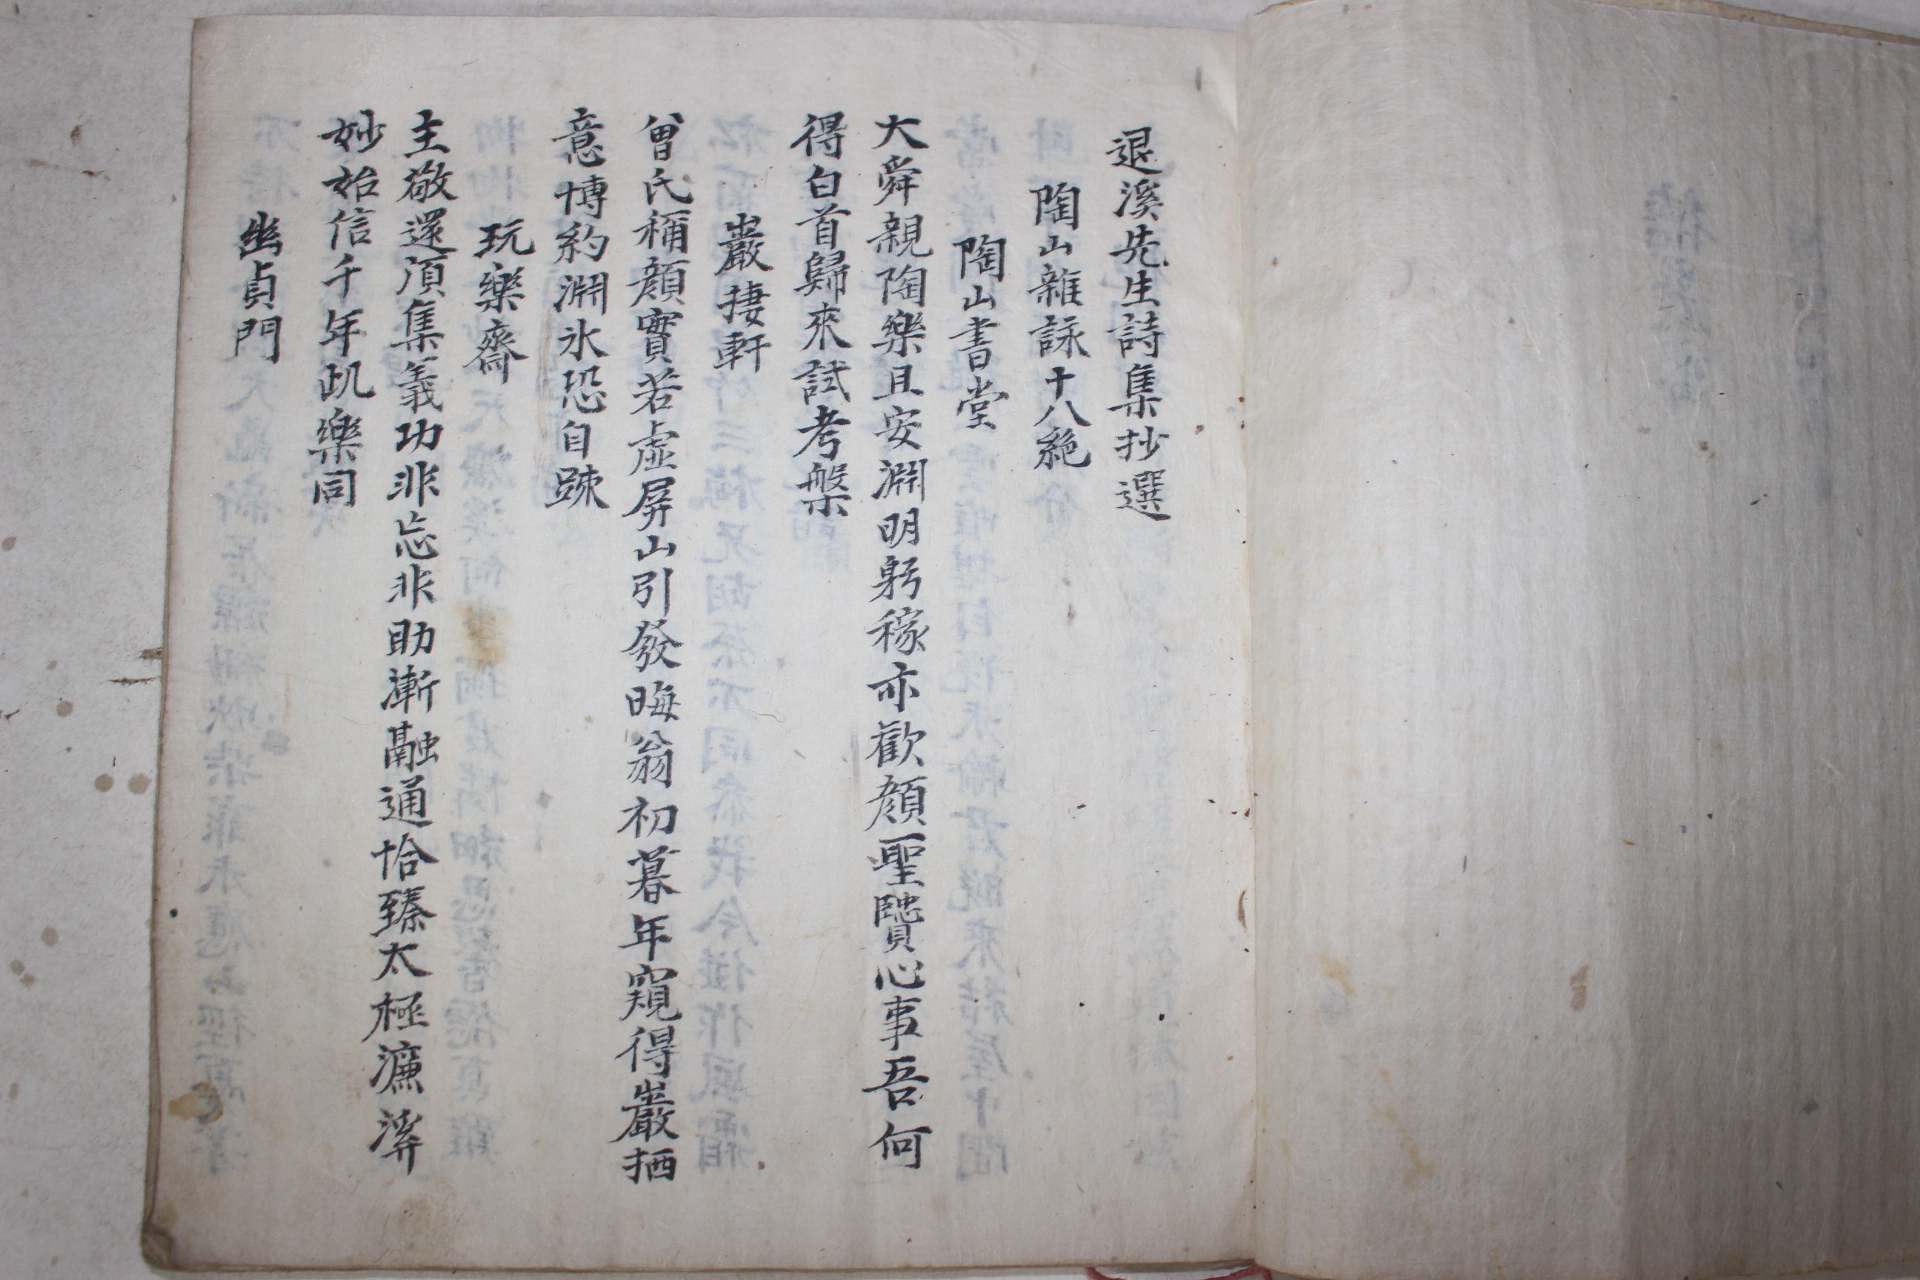 退溪先生詩集抄選
陶山雜詠十八絶
陶山書堂
大舜親陶樂且安淵明躬稼亦歡顔聖賢心事吾何
得白首歸來試考槃
巖捿軒
曾氏稱顔實若虛屛山引發晦翁初暮年窺得巖栖
意博約淵氷恐自踈
玩樂齋
主敬還湏集義功非忘非助漸融通恰臻太極濂溪
妙始信千年此樂同
幽貞門